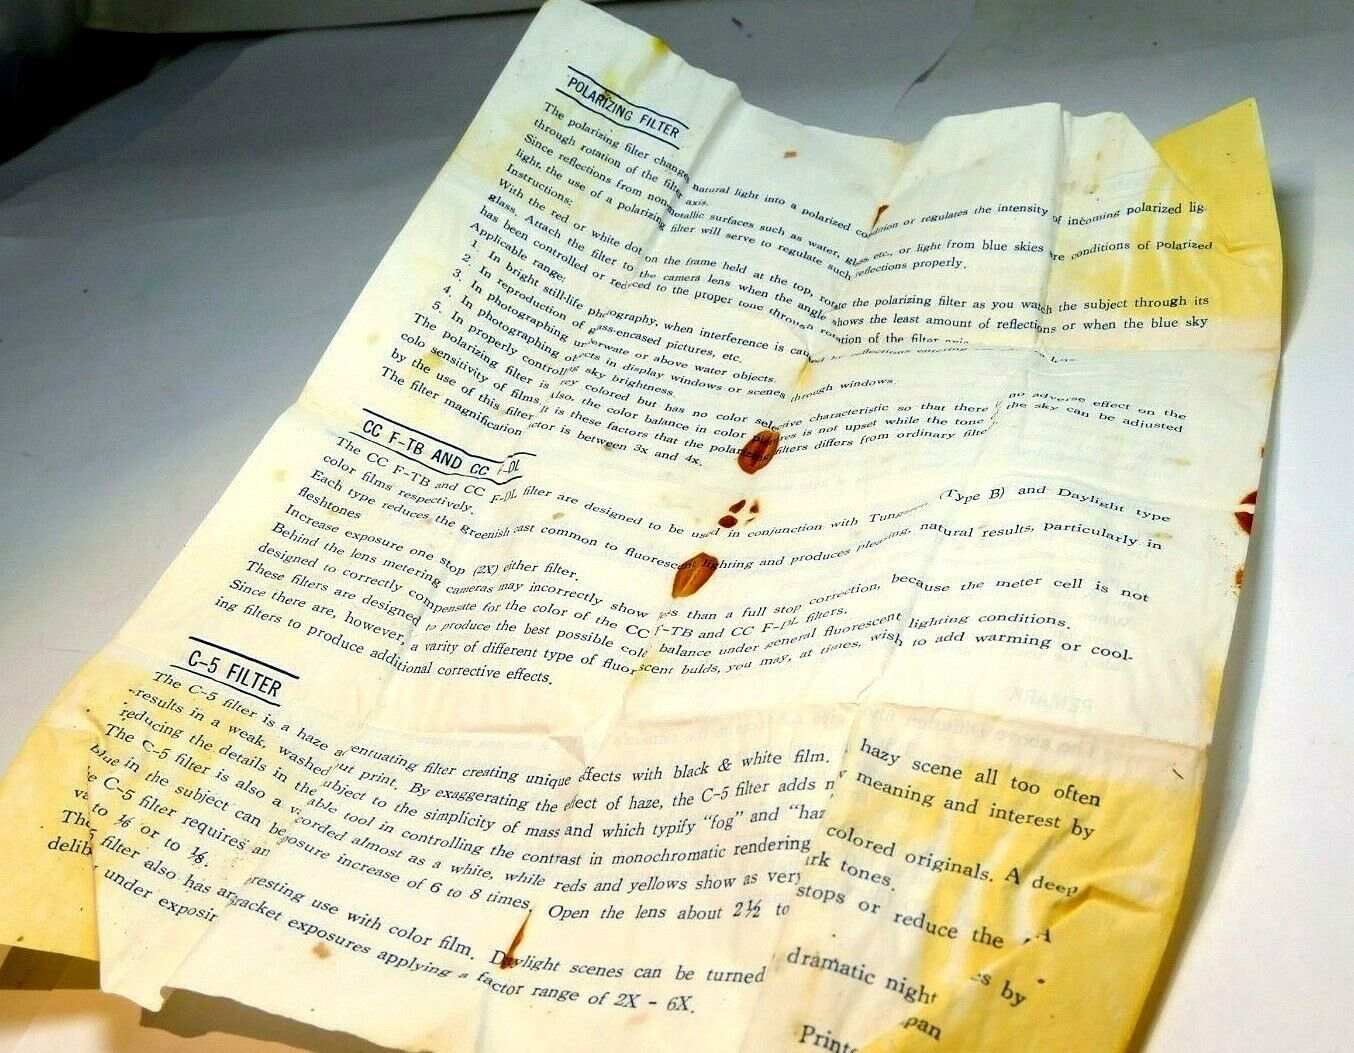 POLARIZING FILTER
The polarizing filter change natural light into a polarized condition or regulates the intensity of incoming polarized lig
through rotation of the filte axis.
Since reflections from non-metallic surfaces such as water, glass etc., or light from blue skies are conditions of polarized
light, the use of a polarizing filter will serve to regulate such reflections properly.
Instructions:
With the red or white dot on the frame held at the top, rotate the polarizing filter as you watch the subject through its
glass. Attach the filter to the camera lens when the angle shows the least amount of reflections or when the blue sky
has been controlled or reduced to the proper tone through rotation of the filter axis
Applicable range:
1. In bright still-life photography, when interference is caused by reflections entering
2. In reproduction of glass-encased pictures, etc.
3. In photographing underwate or above water objects.
4. In photographing objects in display windows or scenes through windows.
5. In properly controlling sky brightness.
The polarizing filter is grey colored but has no color selective characteristic so that there is no adverse effect on the
colo sensitivity of films. Also, the color balance in color pictures is not upset while the tone of the sky can be adjusted
by the use of this filter. It is these factors that the polarizing filters differs from ordinary filte
The filter magnification factor is between 3x and 4x.
CC F-TB AND CC F-DL
The CC F-TB and CC F-DL filter are designed to be used in conjunction with Tungsten (Type B) and Daylight type
color films respectively.
Each type reduces the greenish cast common to fluorescent lighting and produces pleasing, natural results, particularly in
fleshtones
Increase exposure one stop (2X) either filter.
Behind the lens metering cameras may incorrectly show less than a full stop correction, because the meter cell is not
designed to correctly compensate for the color of the CC F-TB and CC F-DL filters.
These filters are designed to produce the best possible colo balance under general fluorescent lighting conditions.
Since there are, however, a varity of different type of fluorescent bulds, you may, at times, wish to add warming or cool-
ing filters to produce additional corrective effects.
C-5 FILTER
The C-5 filter is a haze accentuating filter creating unique effects with black & white film. hazy scene all too often
results in a weak, washed out print. By exaggerating the effect of haze, the C-5 filter adds meaning and interest by
reducing the details in the subject to the simplicity of mass and which typify "fog" and "haz
The C-5 filter is also a valuable tool in controlling the contrast in monochromatic rendering colored originals. A deep
blue in the subject can be recorded almost as a white, while reds and yellows show as very dark tones.
e C-5 filter requires an exposure increase of 6 to 8 times. Open the lens about 2½ to stops or reduce the
to ⅙ or to ⅛.
5 filter also has an interesting use with color film. Daylight scenes can be turned dramatic night
delib under exposin bracket exposures applying a factor range of 2X - 6X.
REMARK
Printe